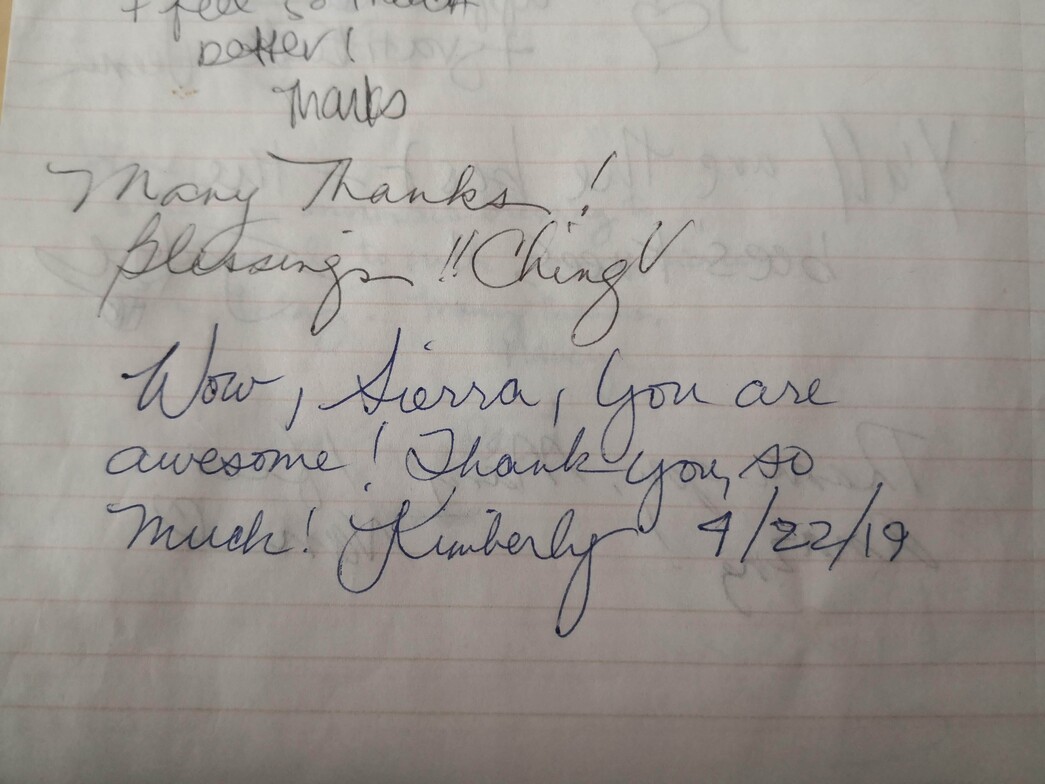 I feel so much
better!
Thanks
Many Thanks!
Blessings!! Ching V
Wow, Sierra, you are
awesome! Thank you, so
much! Kimberly 4/22/19